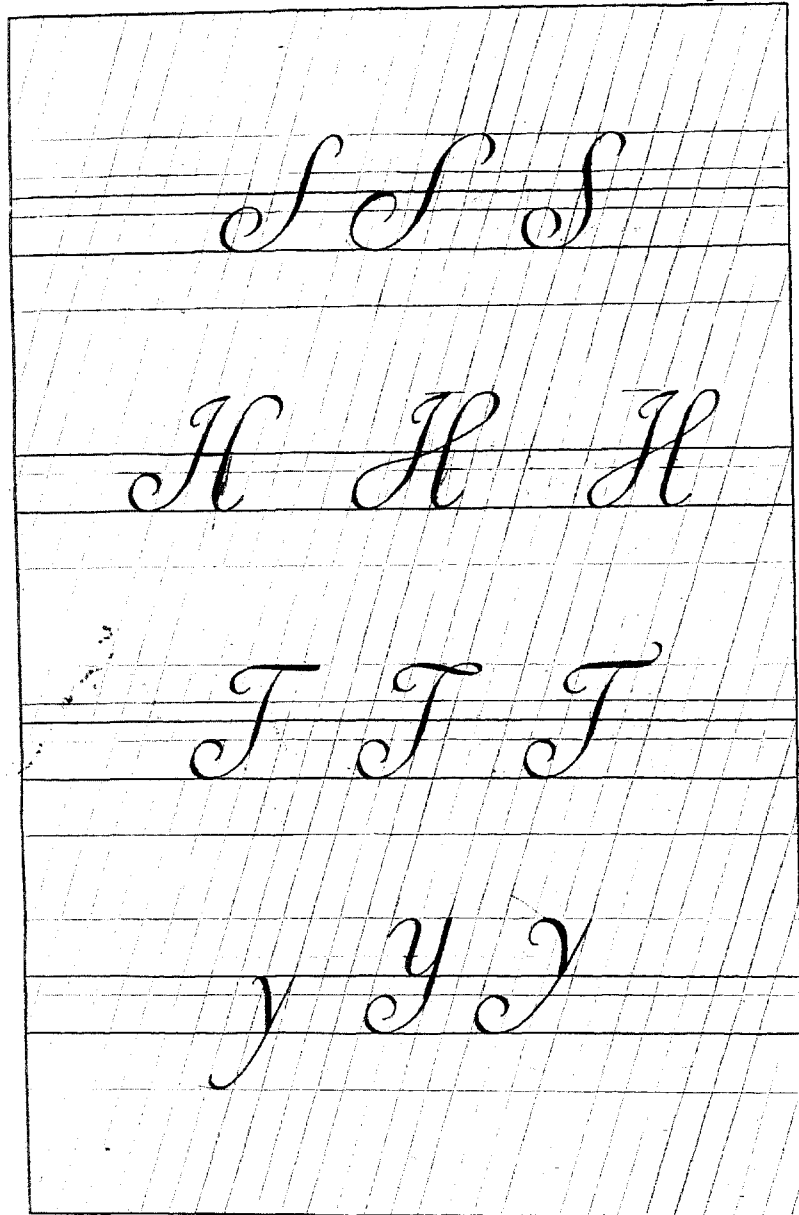 S S S
H H H
T T T
y Y Y